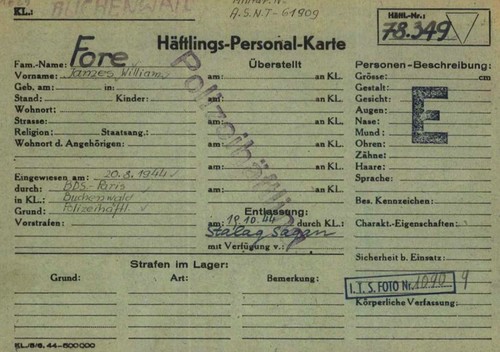 KL.: BUCHENWALD
A.S.N.T-61909
Häftl.-Nr.:
78.349
Häftlings-Personal-Karte
Fam.-Name: Fore
Vorname: James William
Geb. am: in:
Stand: Kinder:
Wohnort:
Strasse:
Religion: Staatsang.:
Wohnort d. Angehörigen:
Eingewiesen am: 20.8.1944
durch: BDS.-Paris
in KL.: Buchenwald
Grund: Polizeihäftl.
Vorstrafen:
Überstellt
am: an KL.
am: an KL.
am: an KL.
am: an KL.
am: an KL.
am: an KL.
Entlassung:
am: 19.10.44 durch KL.:
Stalag Sagan
mit Verfügung v.:
Polizeihäftling
Personen-Beschreibung:
Grösse: cm
Gestalt:
Gesicht:
Augen:
Nase:
Mund:
Ohren:
Zähne:
Haare:
Sprache:
E
Bes. Kennzeichen:
Charakt.-Eigenschaften:
Sicherheit b. Einsatz:
I.T.S. FOTO Nr. 1090 9
Körperliche Verfassung:
Strafen im Lager:
Grund: Art: Bemerkung:
KL/5/6. 44-500000